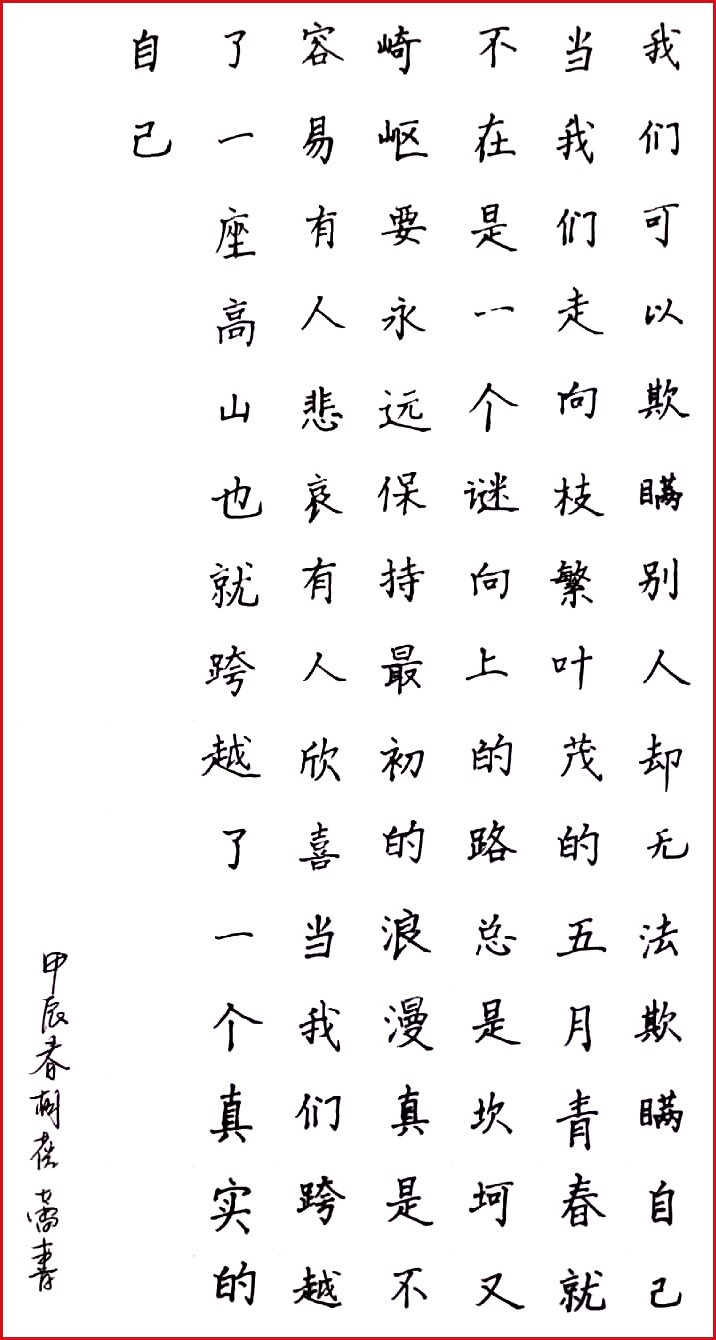 我们可以欺瞒别人却无法欺瞒自己
当我们走向枝繁叶茂的五月青春就
不在是一个谜向上的路总是坎坷又
崎岖要永远保持最初的浪漫真是不
容易有人悲哀有人欣喜当我们跨越
了一座高山也就跨越了一个真实的
自己
甲辰春树